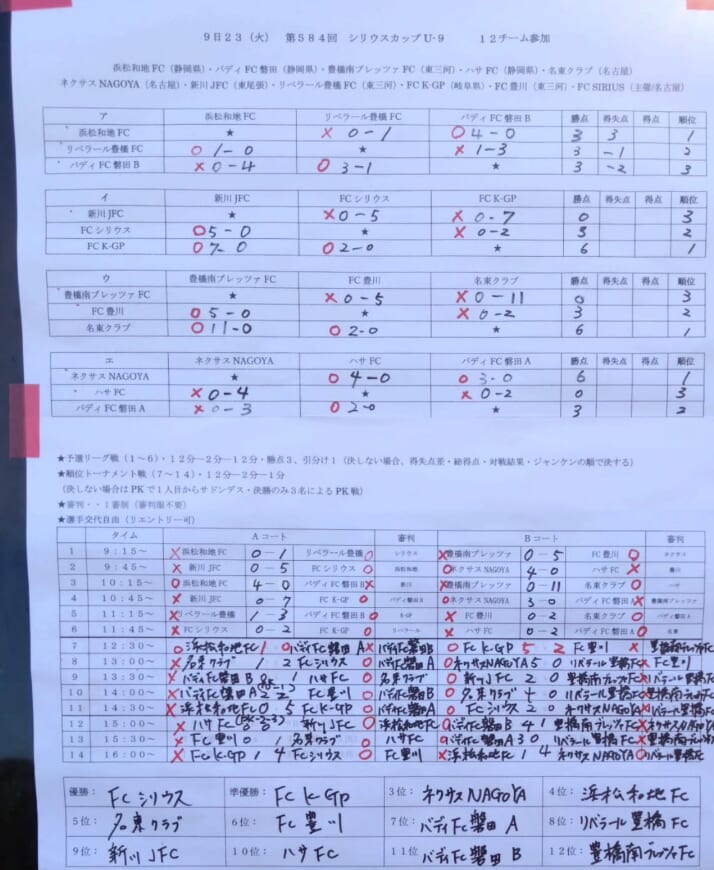 9日23(火) 第584回 シリウスカップU-9 12チーム参加
浜松和地FC(静岡県)・バディFC磐田(静岡県)・豊橋南プレッツァFC(東三河)・ハサFC(静岡県)・名東クラブ(名古屋)
ネクサスNAGOYA(名古屋)・新川JFC(東尾張)・リベラール豊橋FC(東三河)・FC K-GP(岐阜県)・FC豊川(東三河)・FC SIRIUS(主催/名古屋)
ア 浜松和地FC リベラール豊橋FC バディFC磐田B 勝点 得失点 得点 順位
浜松和地FC ★ × 0-1 ○ 4-0 3 3 1
リベラール豊橋FC ○ 1-0 ★ × 1-3 3 -1 2
バディFC磐田B × 0-4 ○ 3-1 ★ 3 -2 3
イ 新川JFC FCシリウス FC K-GP 勝点 得失点 得点 順位
新川JFC ★ × 0-5 × 0-7 0 3
FCシリウス ○ 5-0 ★ × 0-2 3 2
FC K-GP ○ 7-0 ○ 2-0 ★ 6 1
ウ 豊橋南プレッツァFC FC豊川 名東クラブ 勝点 得失点 得点 順位
豊橋南プレッツァFC ★ × 0-5 × 0-11 0 3
FC豊川 ○ 5-0 ★ × 0-2 3 2
名東クラブ ○ 11-0 ○ 2-0 ★ 6 1
エ ネクサスNAGOYA ハサFC バディFC磐田A 勝点 得失点 得点 順位
ネクサスNAGOYA ★ ○ 4-0 ○ 3-0 6 1
ハサFC × 0-4 ★ × 0-2 0 3
バディFC磐田A × 0-3 ○ 2-0 ★ 3 2
★予選リーグ戦(1~6)・12分-2分-12分・勝点3、引分け1(決しない場合、得失点差・総得点・対戦結果・ジャンケンの順で決する)
★順位トーナメント戦(7~14)・12分-2分-1分
(決しない場合はPKで1人目からサドンデス・決勝のみ3名によるPK戦)
★審判・・1審制(審判服不要)
★選手交代自由(リエントリー可)
タイム Aコート 審判 Bコート 審判
1 9:15~ × 浜松和地FC 0-1 リベラール豊橋 ○ シリウス × 豊橋南プレッツァ 0-5 FC豊川 ○ ネクサス
2 9:45~ × 新川JFC 0-5 FCシリウス ○ 浜松和地 ○ ネクサスNAGOYA 4-0 ハサFC × 豊川
3 10:15~ ○ 浜松和地FC 4-0 バディFC磐田B × 新川 × 豊橋南プレッツァ 0-11 名東クラブ ○ ハサ
4 10:45~ × 新川JFC 0-7 FC K-GP ○ バディFC磐田B ○ ネクサスNAGOYA 3-0 バディFC磐田A × 豊橋南プレッツァ
5 11:15~ × リベラール豊橋 1-3 バディFC磐田B ○ K-GP × FC豊川 0-2 名東クラブ ○ バディFC磐田A
6 11:45~ × FCシリウス 0-2 FC K-GP ○ リベラール × ハサFC 0-2 バディFC磐田A ○ 名東
7 12:30~ ○ 浜松和地FC 1 0 バディFC磐田A × バディFC磐田B ○ FC K-GP 5 2 FC豊川 × 豊橋南プレッツァFC
8 13:00~ × 名東クラブ 1 2 FCシリウス ○ バディFC磐田A ○ ネクサスNAGOYA 5 0 リベラール豊橋FC × FC豊川
9 13:30~ × バディFC磐田B 1 ハサFC ○ 名東クラブ ○ 新川JFC 2 0 豊橋南プレッツァFC × リベラール豊橋FC
10 14:00~ × バディFC磐田A 2 2 FC豊川 ○ バディFC磐田B ○ 名東クラブ 4 0 リベラール豊橋FC × 新川JFC
11 14:30~ × 浜松和地FC 0 5 FC K-GP ○ バディFC磐田A ○ FCシリウス 2 0 ネクサスNAGOYA × リベラール豊橋FC
12 15:00~ × ハサFC 0 0 (PK 2-3) 新川JFC ○ 浜松和地FC ○ バディFC磐田B 4 1 豊橋南プレッツァFC × ネクサスNAGOYA
13 15:30~ × FC豊川 0 1 名東クラブ ○ ハサFC ○ バディFC磐田A 3 0 リベラール豊橋FC × 豊橋南プレッツァFC
14 16:00~ × FC K-GP 1 4 FCシリウス ○ FC豊川 × 浜松和地FC 1 4 ネクサスNAGOYA ○ リベラール豊橋FC
優勝: FCシリウス 準優勝: FC K-GP 3位: ネクサスNAGOYA 4位: 浜松和地FC
5位: 名東クラブ 6位: FC豊川 7位: バディFC磐田A 8位: リベラール豊橋FC
9位: 新川JFC 10位: ハサFC 11位 バディFC磐田B 12位: 豊橋南プレッツァFC